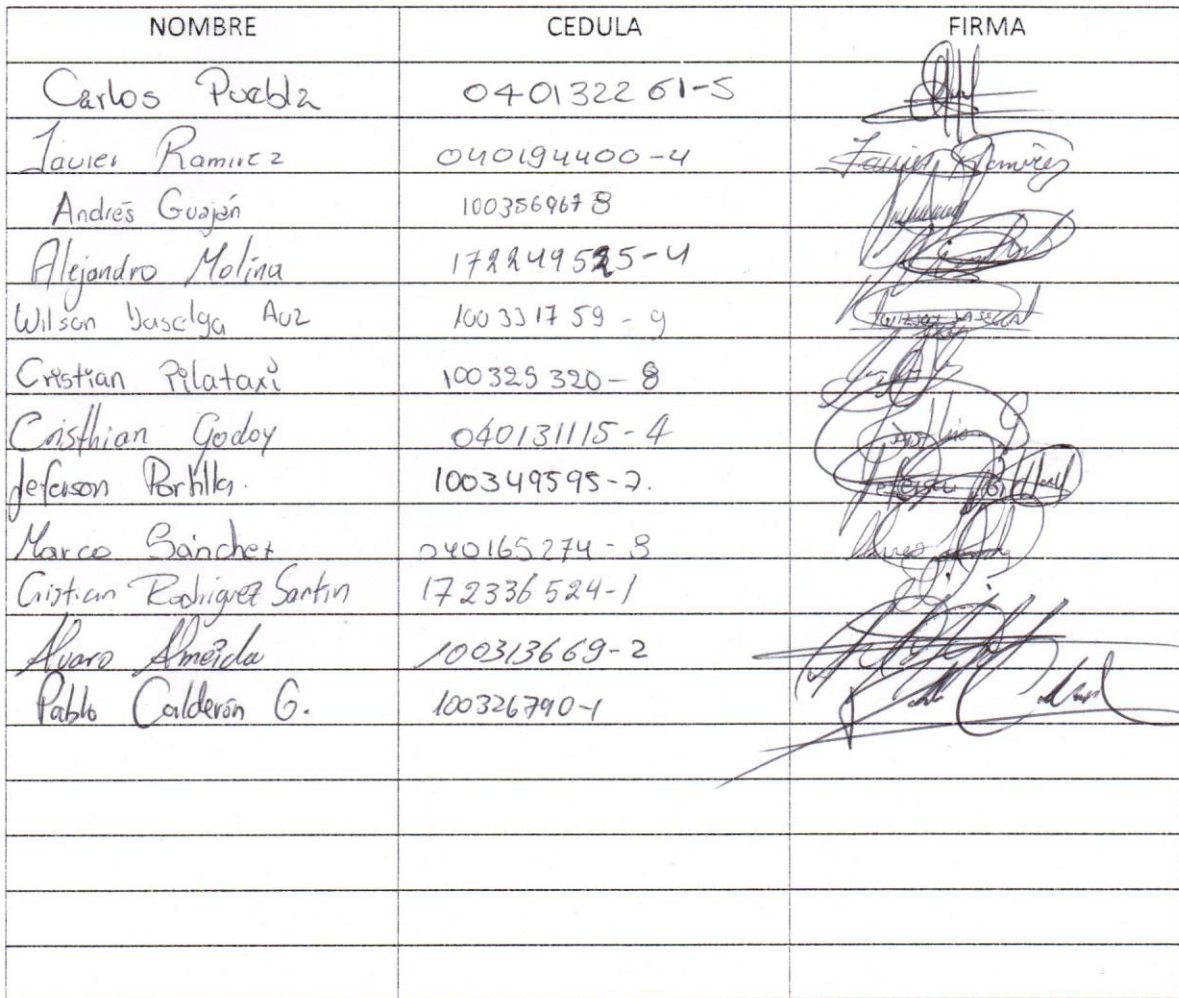 NOMBRE CEDULA FIRMA
Carlos Puebla 040132261-5
Javier Ramirez 040194400-4 Javier Ramirez
Andrés Guaján 100356967 8
Alejandro Molina 172249525-4
Wilson Yaselga Auz 100331759-9
Cristian Pilataxi 100325320-8
Cristhian Godoy 040131115-4
Jeferson Portilla. 100349595-2.
Marco Sánchez 040165274-8
Cristian Rodriguez Santin 172336524-1
Alvaro Almeida 100313669-2
Pablo Calderón G. 100326790-1